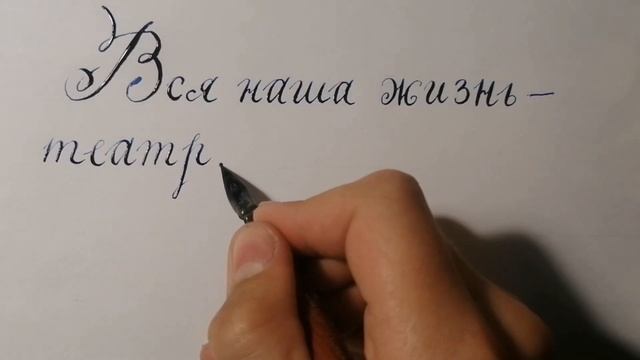 Вся наша жизнь –
театр.